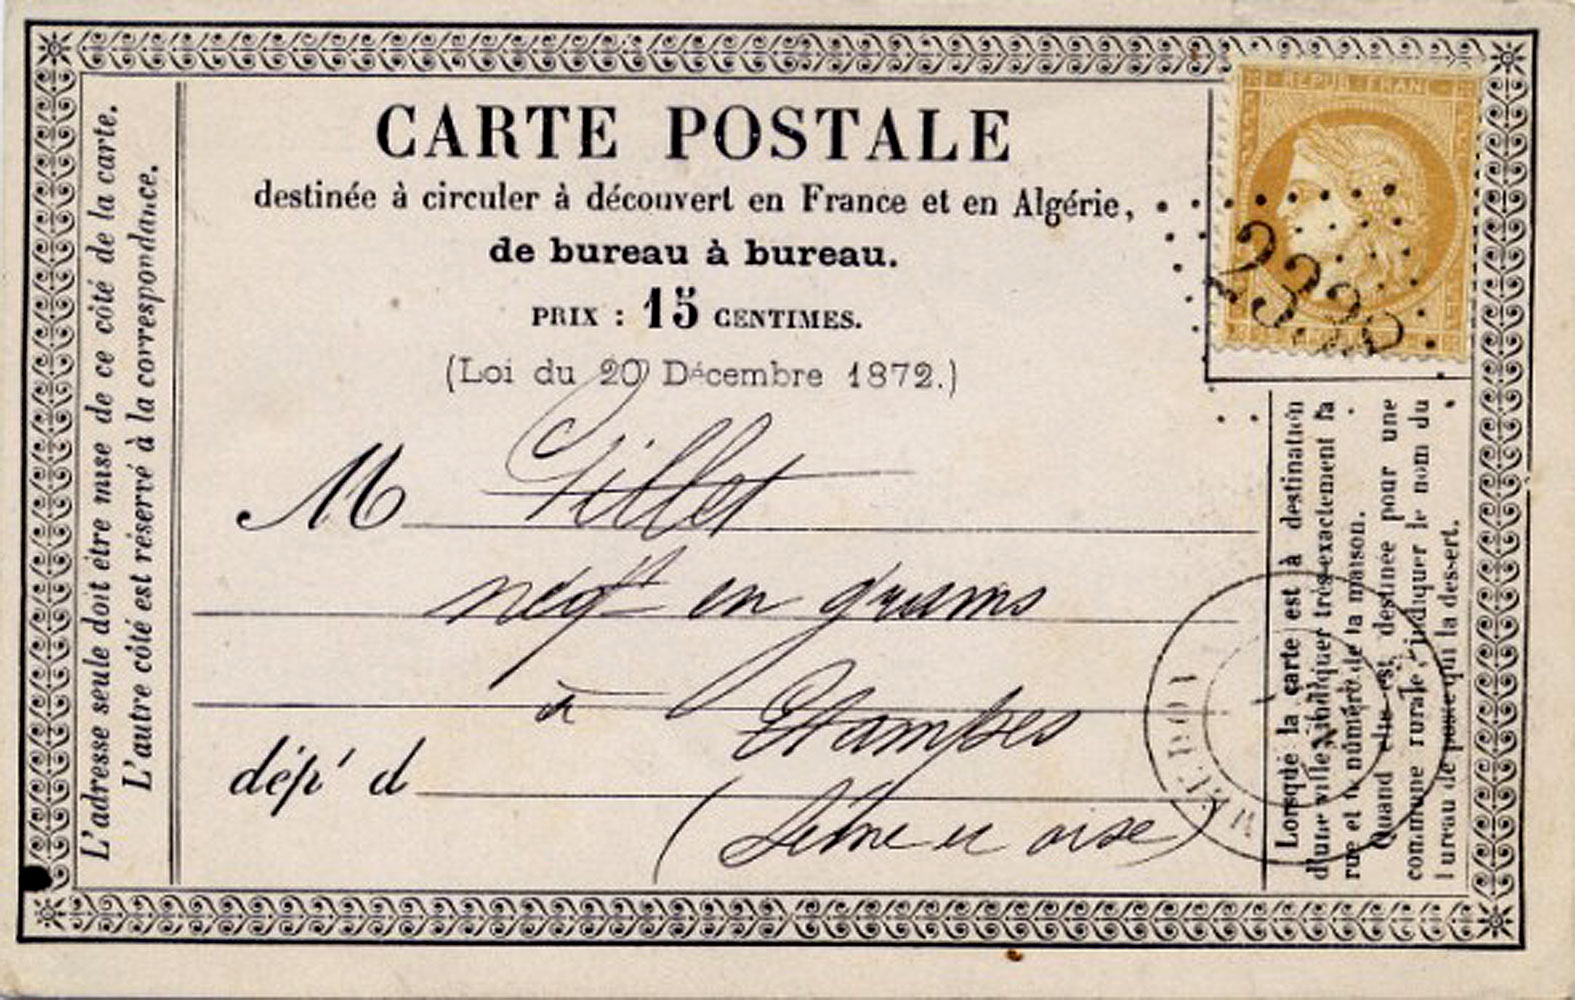 L'adresse seule doit être mise de ce côté de la carte.
L'autre côté est réservé à la correspondance.
CARTE POSTALE
destinée à circuler à découvert en France et en Algérie,
de bureau à bureau.
PRIX : 15 CENTIMES.
(Loi du 20 Décembre 1872.)
REPUB FRANC
M Gillet
negt en grains
à Etampes
dépt d
(Seine et oise)
Lorsque la carte est à destination
d'une ville, indiquer très-exactement la
rue et le numéro de la maison.
Quand elle est destinée pour une
commune rurale, indiquer le nom du
bureau de poste qui la dessert.